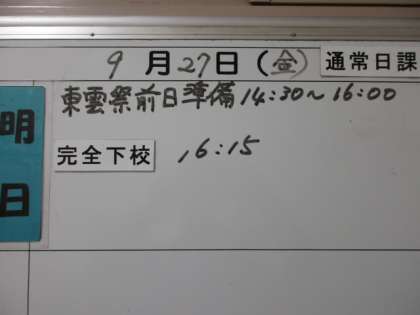 9月27日(金) 通常日課
明日
東雲祭前日準備 14:30～16:00
完全下校 16:15